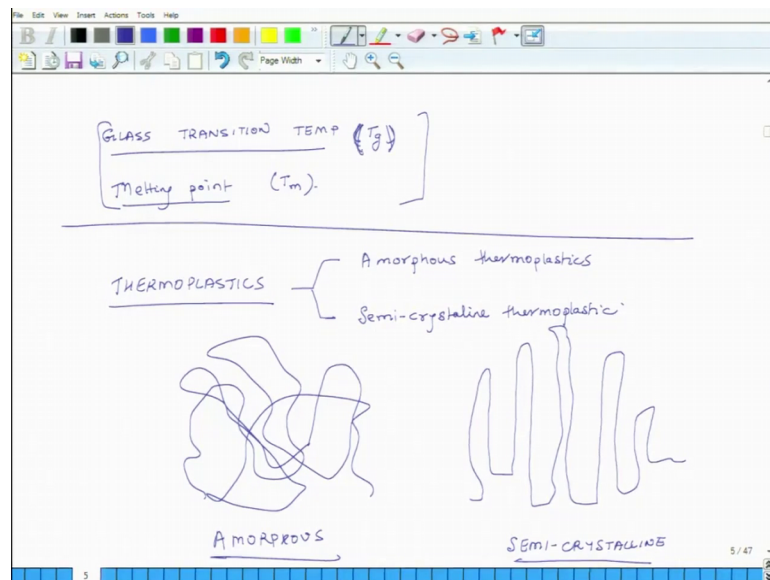 File Edit View Insert Actions Tools Help
B I
Page Width
GLASS TRANSITION TEMP (Tg)
Melting point (Tm).
THERMOPLASTICS
Amorphous thermoplastics
Semi-crystaline thermoplastic
AMORPHOUS
SEMI-CRYSTALLINE
5/47
5